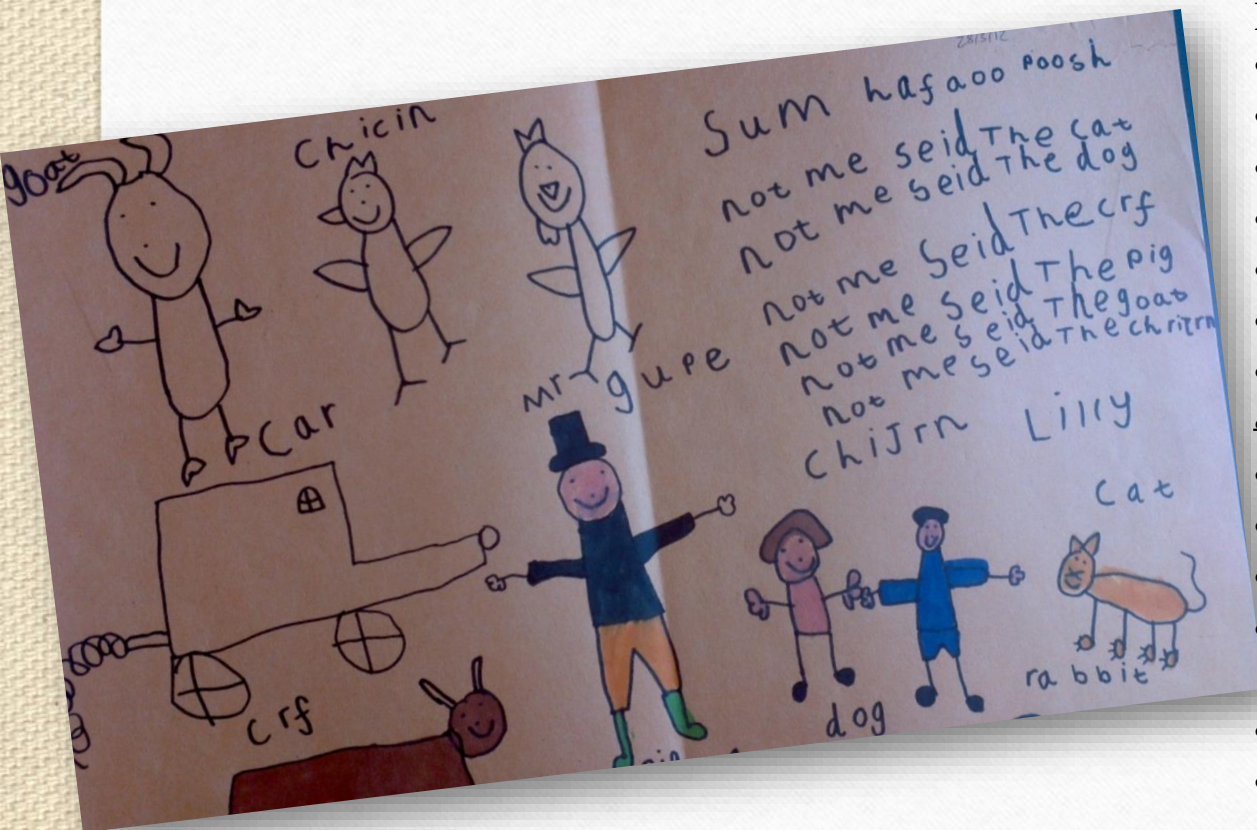 goat
Chicin
28/3/12
Sum hafaoo Poosh
not me seid The cat
not me seid The dog
not me seid The crf
not me seid The pig
not me seid The goat
not me seid The
chiJrn Lilly
Car
mr gupe
Cat
crf
dog
rabbit